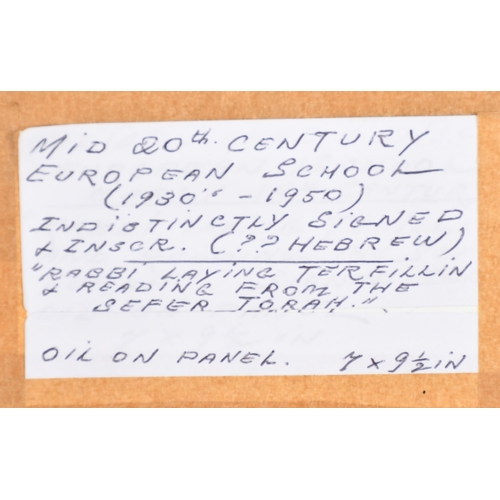 MID 20th. CENTURY
EUROPEAN SCHOOL
(1930's - 1950)
INDISTINCTLY SIGNED
& INSCR. (?? HEBREW)
"RABBI LAYING TERFILLIN
& READING FROM THE
SEFER TORAH."
OIL ON PANEL. 7 x 9½ in